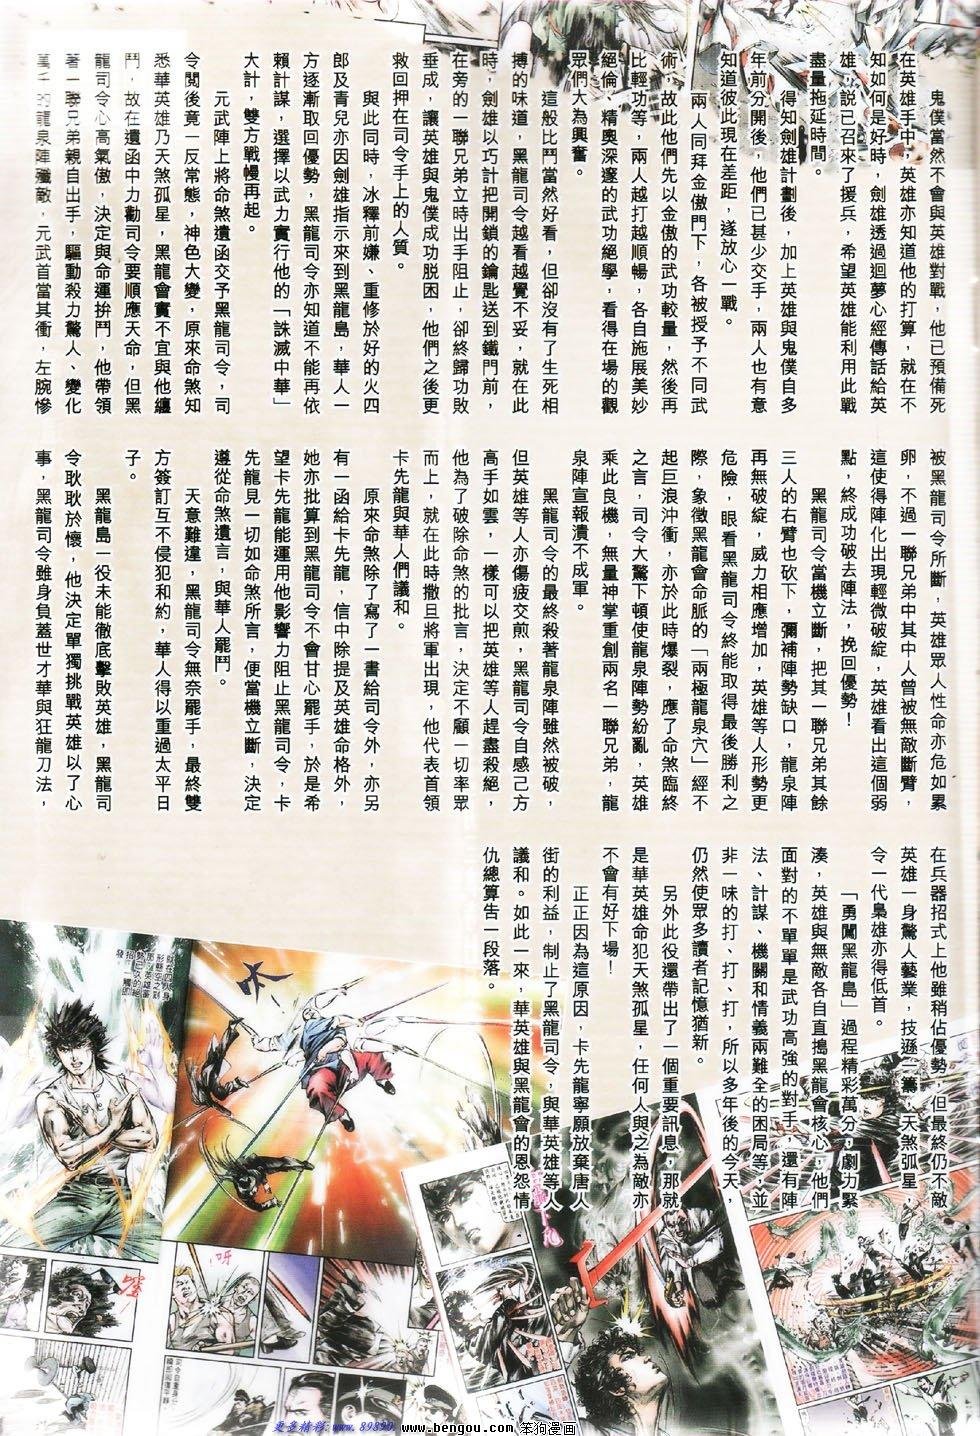 鬼僕當然不會與英雄對戰，他已預備死
在英雄手中，英雄亦知道他的打算，就在不
知如何是好時，劍雄透過迴夢心經傳話給英
雄，說已召來了援兵，希望英雄能利用此戰
盡量拖延時間。
得知劍雄計劃後，加上英雄與鬼僕自多
年前分開後，他們已甚少交手，兩人也有意
知道彼此現在差距，遂放心一戰。
兩人同拜金傲門下，各被授予不同武
術，故此他們先以金傲的武功較量，然後再
比輕功等，兩人越打越順暢，各自施展美妙
絕倫、精奧深邃的武功絕學，看得在場的觀
眾們大為興奮。
這般比鬥當然好看，但卻沒有了生死相
搏的味道，黑龍司令越看越覺不妥，就在此
時，劍雄以巧計把開鎖的鑰匙送到鐵門前，
在旁的一聯兄弟立時出手阻止，卻終歸功敗
垂成，讓英雄與鬼僕成功脫困，他們之後更
救回押在司令手上的人質。
與此同時，冰釋前嫌、重修於好的火四
郎及青兒亦因劍雄指示來到黑龍島，華人一
方逐漸取回優勢，黑龍司令亦知道不能再依
賴計謀，選擇以武力實行他的「誅滅中華」
大計，雙方戰幔再起。
元武陣上將命煞遺函交予黑龍司令，司
令閱後竟一反常態，神色大變，原來命煞知
悉華英雄乃天煞孤星，黑龍會實不宜與他纏
鬥，故在遺函中力勸司令要順應天命，但黑
龍司令心高氣傲，決定與命運拚鬥，他帶領
著一聯兄弟親自出手，驅動殺力驚人、變化
萬千的龍泉陣殲敵，元武首當其衝，左腕慘
被黑龍司令所斷，英雄眾人性命亦危如累
卵，不過一聯兄弟中其中人曾被無敵斷臂，
這使得陣化出現輕微破綻，英雄看出這個弱
點，終成功破去陣法，挽回優勢！
黑龍司令當機立斷，把其一聯兄弟其餘
三人的右臂也砍下，彌補陣勢缺口，龍泉陣
再無破綻，威力相應增加，英雄等人形勢更
危險，眼看黑龍司令終能取得最後勝利之
際，象徵黑龍會命脈的「兩極龍泉穴」經不
起巨浪沖衝，亦於此時爆裂，應了命煞臨終
之言，司令大驚下頓使龍泉陣勢紛亂，英雄
乘此良機，無量神掌重創兩名一聯兄弟，龍
泉陣宣報潰不成軍。
黑龍司令的最終殺著龍泉陣雖然被破，
但英雄等人亦傷疲交煎，黑龍司令自感己方
高手如雲，一樣可以把英雄等人趕盡殺絕，
他為了破除命煞的批言，決定不顧一切率眾
而上，就在此時撒旦將軍出現，他代表首領
卡先龍與華人們議和。
原來命煞除了寫了一書給司令外，亦另
有一函給卡先龍，信中除提及英雄命格外，
她亦批算到黑龍司令不會甘心罷手，於是希
望卡先龍能運用他影響力阻止黑龍司令，卡
先龍見一切如命煞所言，便當機立斷，決定
遵從命煞遺言，與華人罷鬥。
天意難違，黑龍司令無奈罷手，最終雙
方簽訂互不侵犯和約，華人得以重過太平日
子。
黑龍島一役未能徹底擊敗英雄，黑龍司
令耿耿於懷，他決定單獨挑戰英雄以了心
事，黑龍司令雖身負蓋世才華與狂龍刀法，
在兵器招式上他雖稍佔優勢，但最終仍不敵
英雄一身驚人藝業，技遜一籌，天煞孤星，
令一代梟雄亦得低首。
「勇闖黑龍島」過程精彩萬分，劇力緊
湊，英雄與無敵各自直搗黑龍會核心，他們
面對的不單單是武功高強的對手，還有陣
法、計謀、機關和情義兩難全的困局等，並
非一味的打、打、打，所以多年後的今天，
仍然使眾多讀者記憶猶新。
另外此役還帶出了一個重要訊息，那就
是華英雄命犯天煞孤星，任何人與之為敵亦
不會有好下場！
正正因為這原因，卡先龍寧願放棄唐人
街的利益，制止了黑龍司令，與華英雄等人
議和。如此一來，華英雄與黑龍會的恩怨情
仇總算告一段落。
呀
更多精彩:www.89890.
www.bengou.com 笨狗漫画